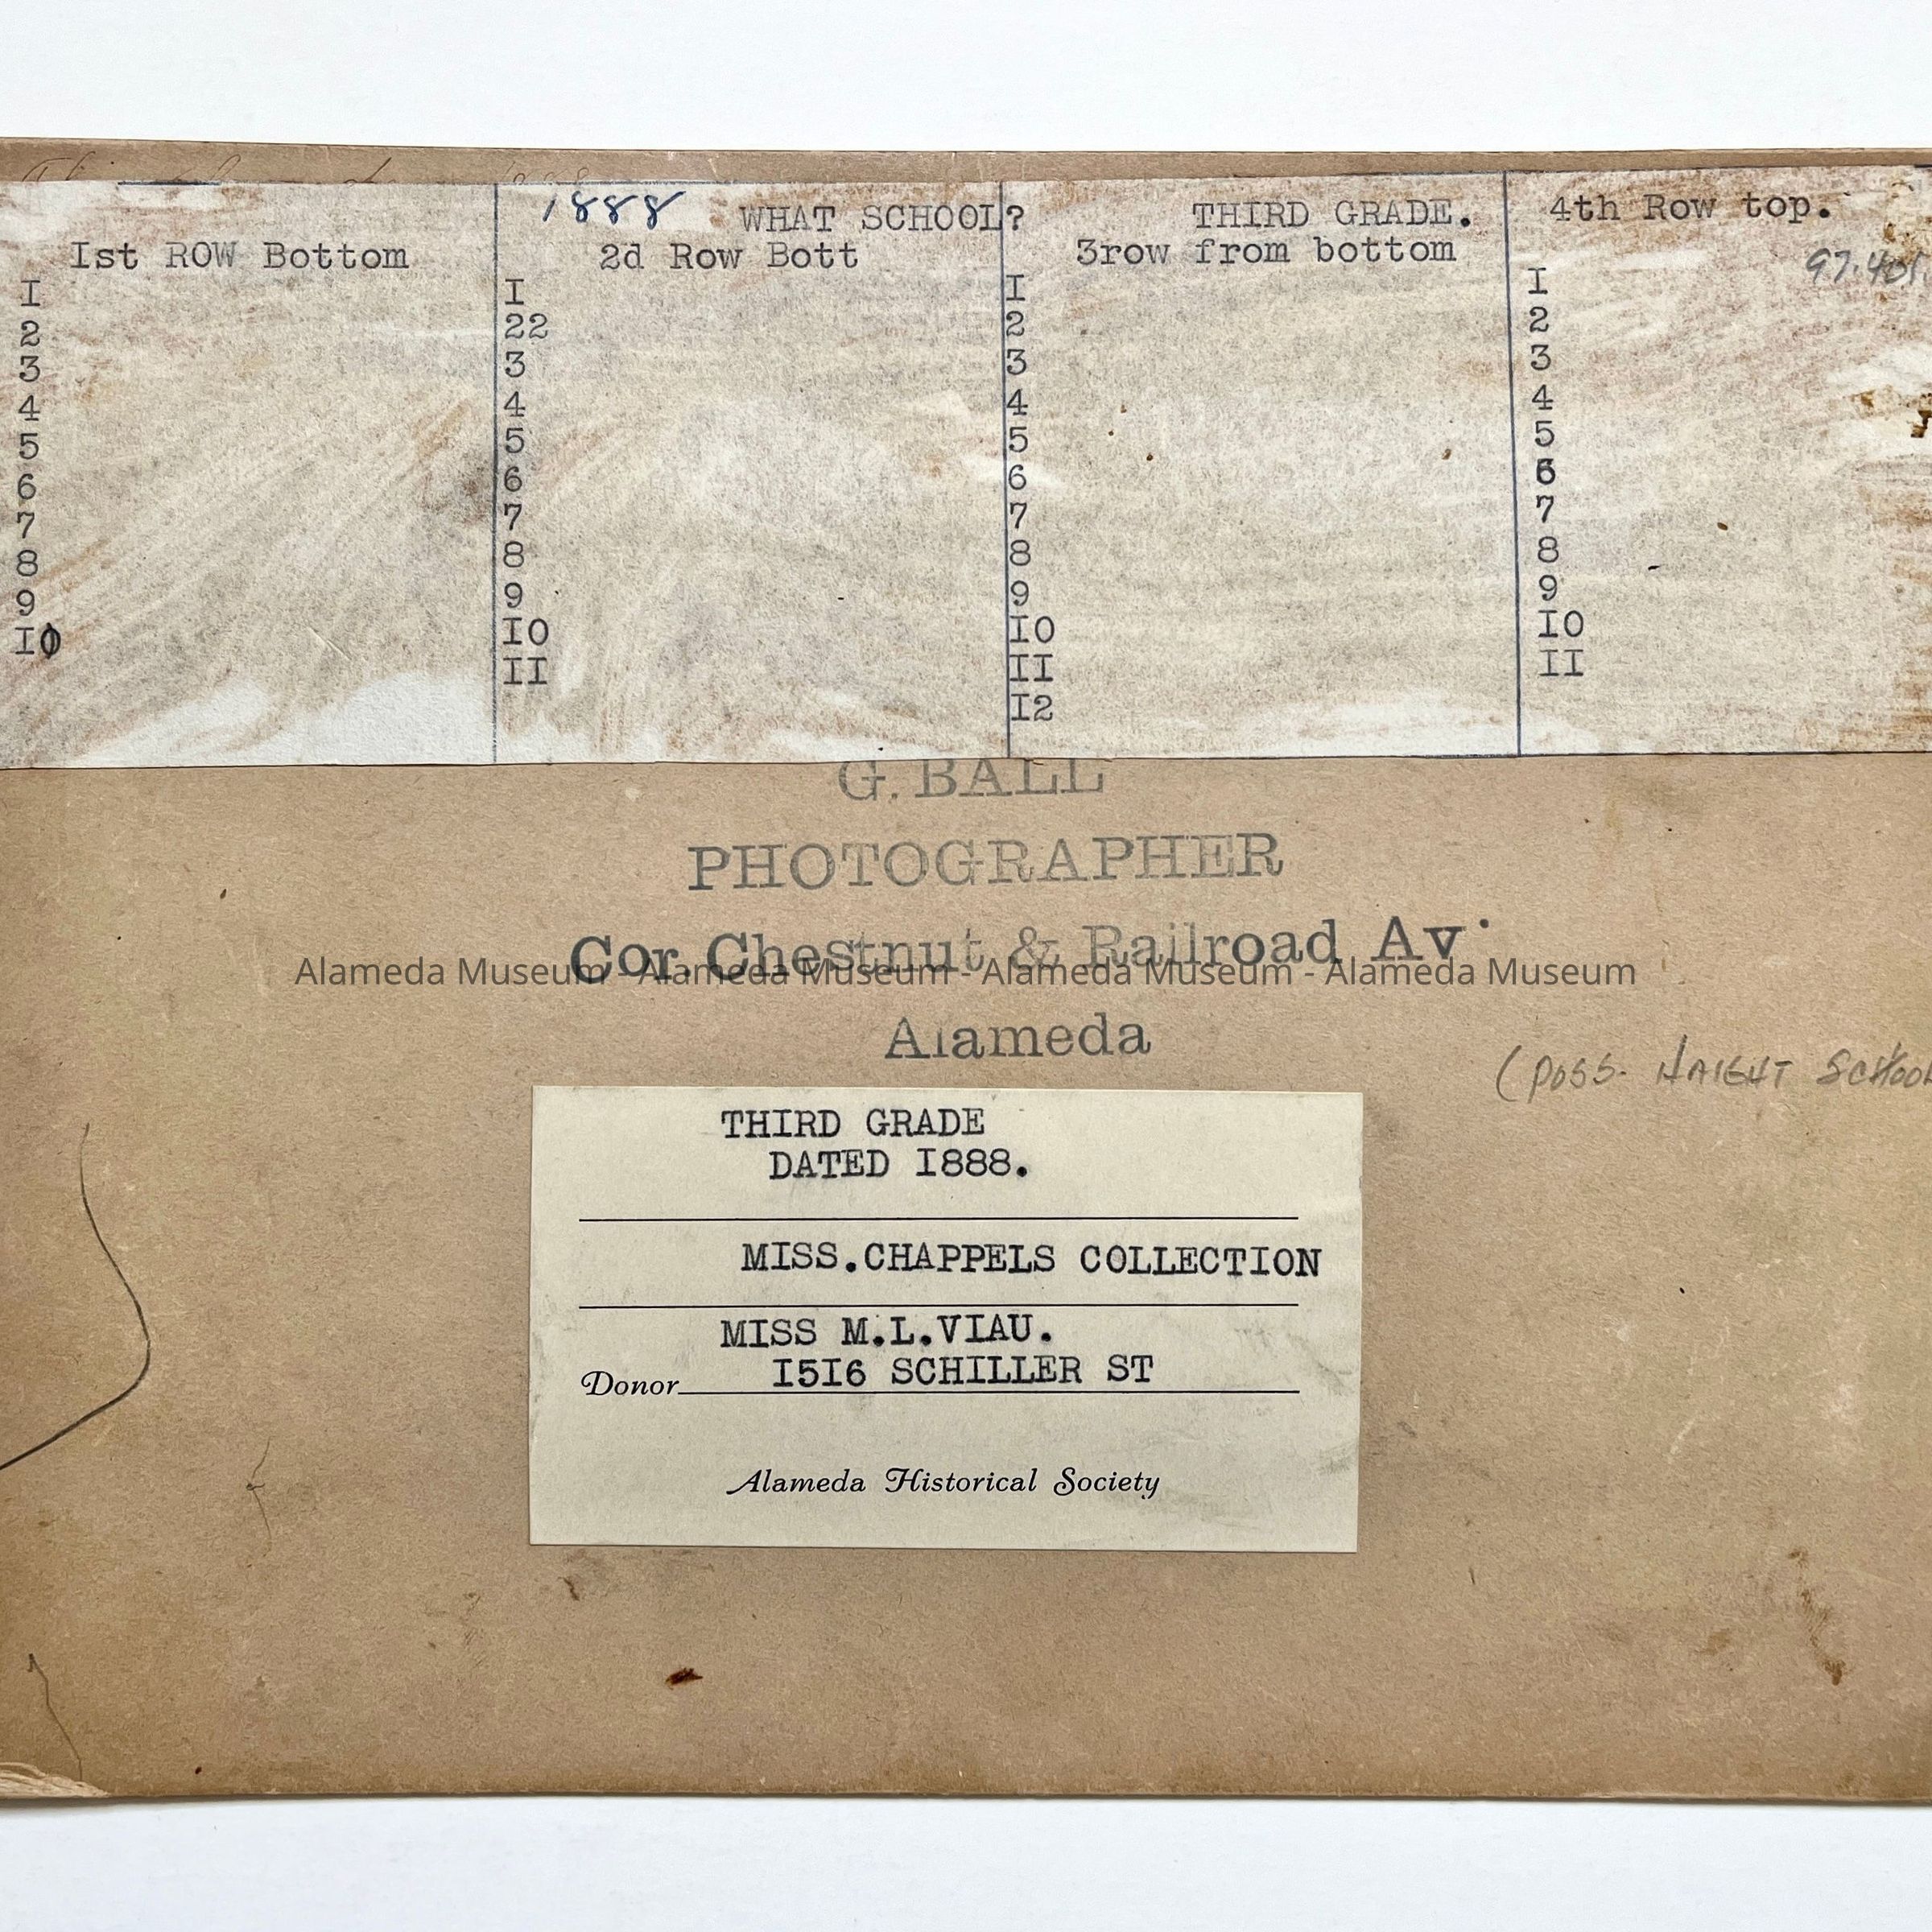 1888 WHAT SCHOOL? THIRD GRADE.
Ist ROW Bottom
I
2
3
4
5
6
7
8
9
I0
2d Row Bott
I
22
3
4
5
6
7
8
9
IO
II
3row from bottom
I
2
3
4
5
6
7
8
9
IO
II
I2
4th Row top.
97.401
I
2
3
4
5
6
7
8
9
IO
II
G. BALL
PHOTOGRAPHER
Cor Chestnut & Railroad Av.
Alameda Museum - Alameda Museum - Alameda Museum - Alameda Museum
Alameda
(POSS. HAIGHT SCHOOL
THIRD GRADE
DATED I888.
MISS.CHAPPELS COLLECTION
MISS M.L.VIAU.
Donor I5I6 SCHILLER ST
Alameda Historical Society